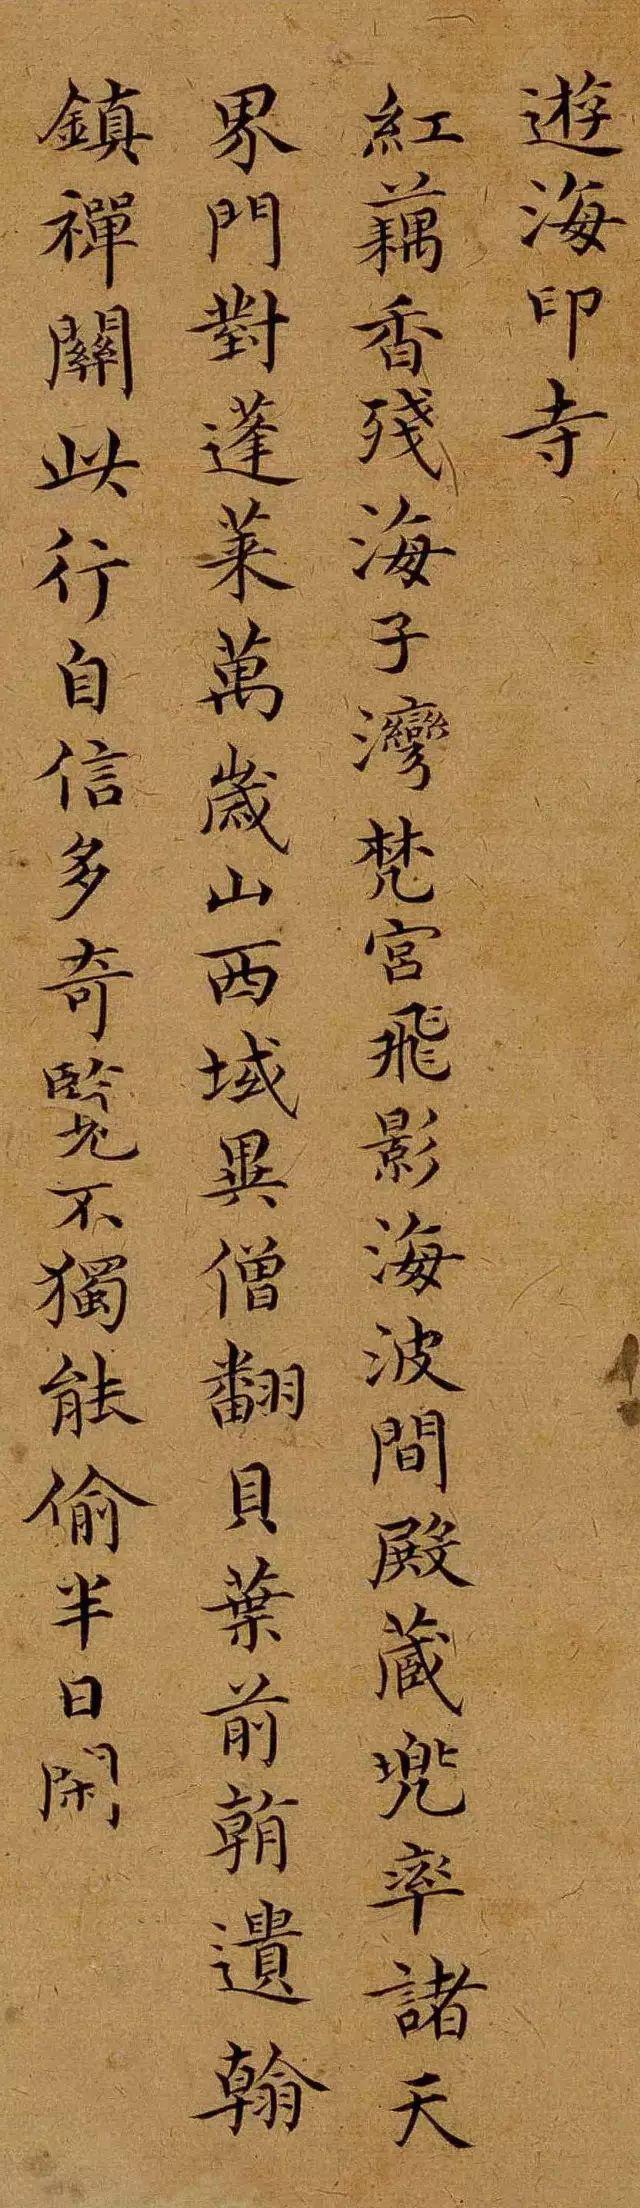 遊海印寺
紅藕香殘海子灣梵宮飛影海波間殿藏兜率諸天
界門對蓬萊萬歲山西域異僧翻貝葉前朝遺翰
鎮禪關此行自信多奇覽不獨能偷半日閑